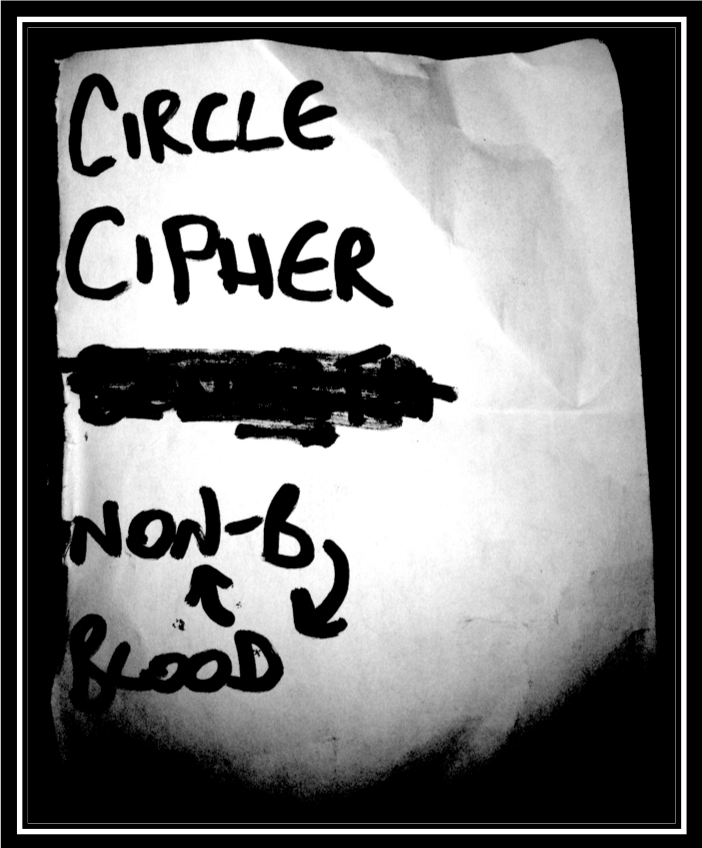 CIRCLE
CIPHER
NON-B
BLOOD